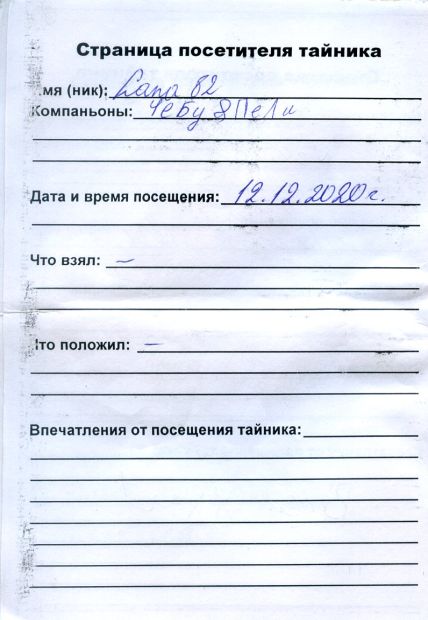 Страница посетителя тайника
мя (ник): Lana 82
Компаньоны:
Дата и время посещения: 12.12.2020г.
Что взял: –
то положил: –
Впечатления от посещения тайника: